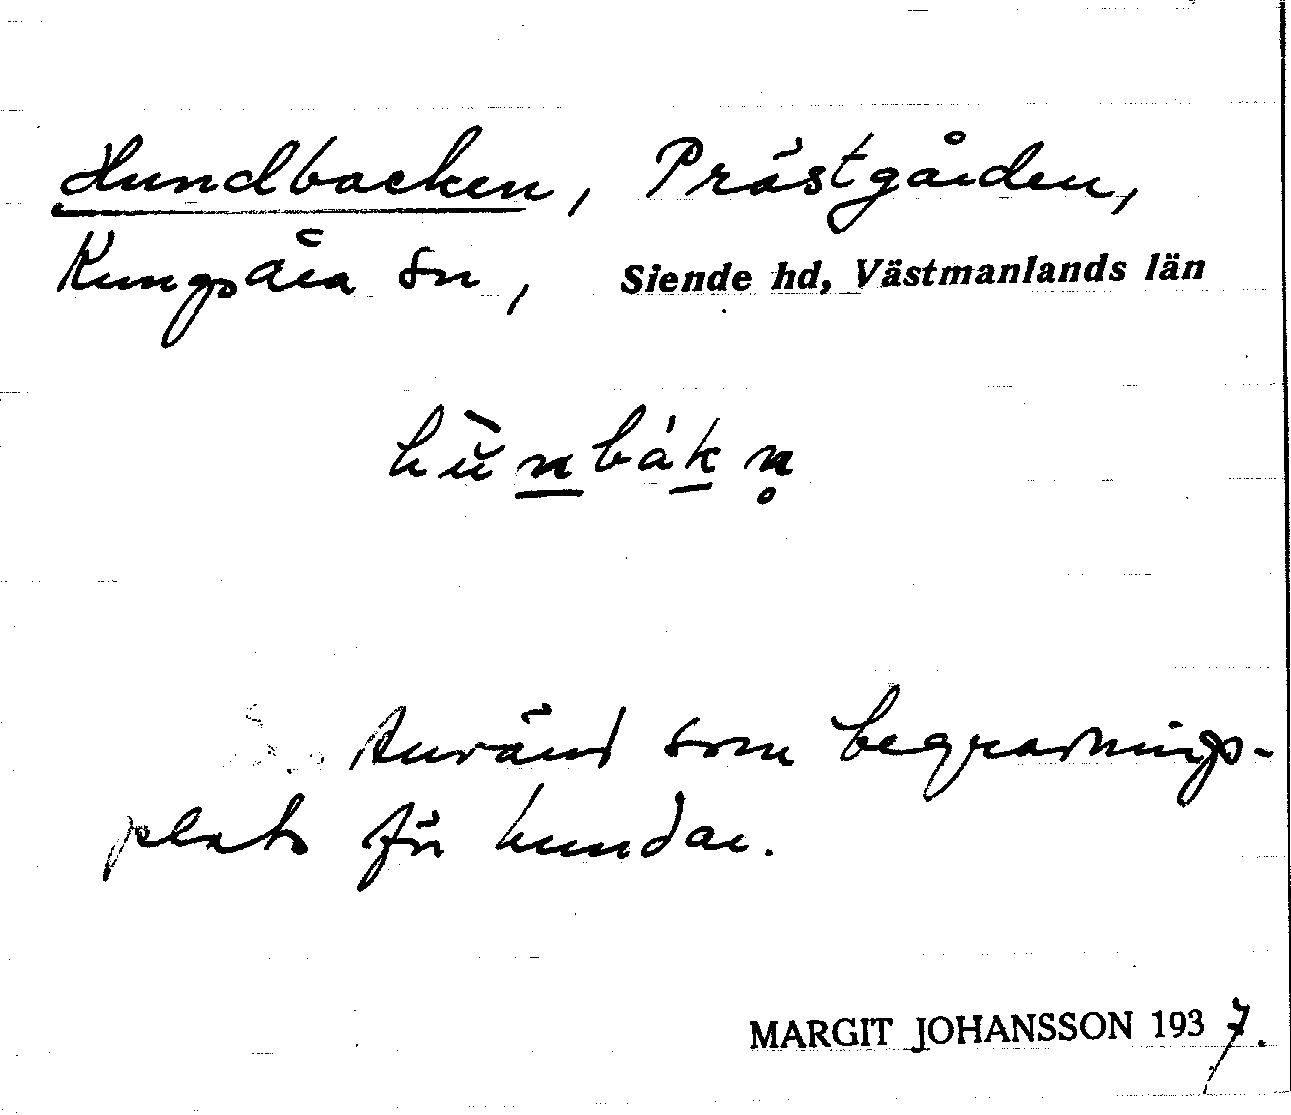 Hundbacken, Prästgården,
Kungsåra sn, Siende hd, Västmanlands län
hù̆nbákn̥
Använd som begravnings-
plats för hundar.
MARGIT JOHANSSON 1937.